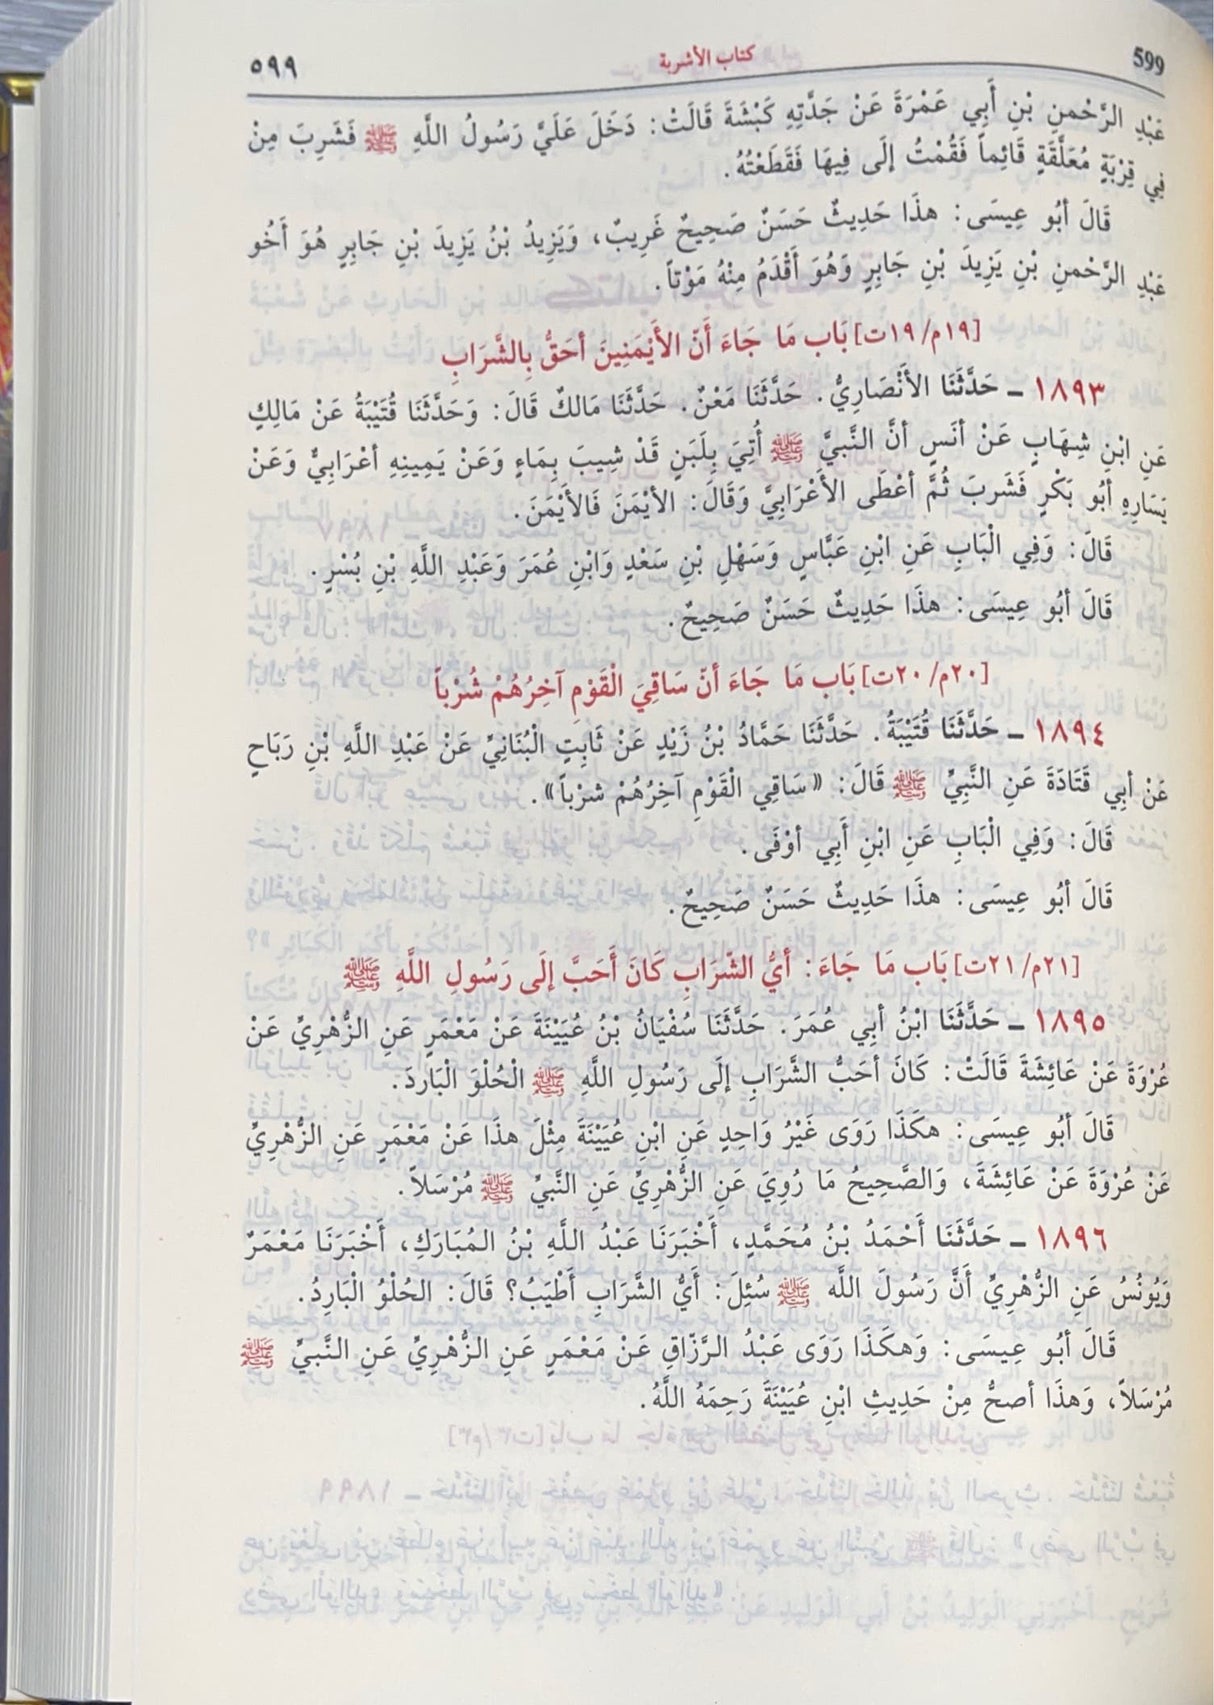 599 كتاب الأشربة ٥٩٩
عَبْدِ الرَّحْمنِ بْنِ أَبِي عَمْرَةَ عَنْ جَدَّتِهِ كَبْشَةَ قَالَتْ: دَخَلَ عَلَيَّ رَسُولُ اللَّهِ ﷺ فَشَرِبَ مِنْ
فِي قِرْبَةٍ مُعَلَّقَةٍ قَائِماً فَقُمْتُ إلَى فِيهَا فَقَطَعْتُهُ.
قَالَ أبُو عِيسَى: هذَا حَدِيثٌ حَسَنٌ صَحِيحٌ غَرِيبٌ، وَيَزِيدُ بْنُ يَزِيدَ بْنِ جَابِرٍ هُوَ أَخُو
عَبْدِ الرَّحْمنِ بْنِ يَزِيدَ بْنِ جَابِرٍ وَهُوَ أَقْدَمُ مِنْهُ مَوْتاً.
[١٩م/ ١٩ت] بَاب مَا جَاءَ أَنّ الأَيْمَنِينَ أحَقُّ بِالشَّرَابِ
١٨٩٣ ـ حَدَّثَنَا الأَنْصَارِيُّ. حَدَّثَنَا مَعْنٌ. حَدَّثَنَا مَالكٌ قَالَ: وَحَدَّثَنَا قُتَيْبَةُ عَنْ مَالِكٍ
عَنِ ابْنِ شِهَابٍ عَنْ أنَسٍ أنَّ النَّبيَّ ﷺ أُتِيَ بِلَبَنٍ قَدْ شِيبَ بِمَاءٍ وَعَنْ يَمِينِهِ أعْرَابِيٌّ وَعَنْ
يَسَارِهِ أبُو بَكْرٍ فَشَربَ ثُمَّ أعْطَى الأَعْرَابِيَّ وَقَالَ: الأيْمَنَ فَالأيْمَنَ.
قَالَ: وَفِي الْبَابِ عَنِ ابْنِ عَبَّاسٍ وَسَهْلِ بْنِ سَعْدٍ وَابْنِ عُمَرَ وَعَبْدِ اللَّهِ بْنِ بُسْرٍ.
قَالَ أبُو عِيسَى: هذَا حَدِيثٌ حَسَنٌ صَحِيحٌ.
[٢٠م/ ٢٠ت] بَاب مَا جَاءَ أنّ سَاقِيَ الْقَوْمِ آخِرُهُمْ شُرْباً
١٨٩٤ ـ حَدَّثَنَا قُتَيْبَةُ. حَدَّثَنَا حَمَّادُ بْنُ زَيْدٍ عَنْ ثَابِتٍ الْبُنَانِيِّ عَنْ عَبْدِ اللَّهِ بْنِ رَبَاحٍ
عَنْ أبِي قَتَادَةَ عَنِ النَّبِيِّ ﷺ قَالَ: «سَاقِي الْقَوْمِ آخِرُهُمْ شرْباً».
قَالَ: وَفِي الْبَابِ عَنِ ابْنِ أَبِي أوْفَى.
قَالَ أبُو عِيسَى: هذَا حَدِيثٌ حَسَنٌ صَحِيحٌ.
[٢١م/ ٢١ت] بَاب مَا جَاءَ: أيُّ الشّرَابِ كَانَ أَحَبَّ إلَى رَسُولِ اللَّهِ ﷺ
١٨٩٥ ـ حَدَّثَنَا ابْنُ أبِي عُمَرَ. حَدَّثَنَا سُفْيَانُ بْنُ عُيَيْنَةَ عَنْ مَعْمَرٍ عَنِ الزُّهْرِيِّ عَنْ
عُرْوَةَ عَنْ عَائِشَةَ قَالَتْ: كَانَ أحَبُّ الشَّرَابِ إلَى رَسُولِ اللَّهِ ﷺ الْحُلْوَ الْبَاردَ.
قَالَ أبُو عِيسَى: هكَذَا رَوَى غَيْرُ وَاحِدٍ عَنِ ابْنِ عُيَيْنَةَ مِثْلَ هذَا عَنْ مَعْمَرٍ عَنِ الزُّهْرِيِّ
عَنْ عُرْوَةَ عَنْ عَائِشَةَ، وَالصَّحِيحُ مَا رُوِيَ عَنِ الزُّهْرِيِّ عَنِ النَّبيِّ ﷺ مُرْسَلاً.
١٨٩٦ ـ حَدَّثَنَا أَحْمَدُ بْنُ مُحَمَّدٍ، أَخْبَرَنَا عَبْدُ اللَّهِ بْنُ المُبَارَكِ، أَخْبَرَنَا مَعْمَرٌ
وَيُونُسُ عَنِ الزُّهْرِيِّ أَنَّ رَسُولَ اللَّه ﷺ سُئِلَ: أَيُّ الشَّرَابِ أَطْيَبُ؟ قَالَ: الحُلْوُ الْبَارِدُ.
قَالَ أبُو عِيسَى: وَهكَذَا رَوَى عَبْدُ الرَّزّاقِ عَنْ مَعْمَرٍ عَنِ الزُّهْرِيِّ عَنِ النَّبيِّ ﷺ
مُرْسَلاً، وَهذَا أصحُّ مِنْ حَدِيثِ ابْنِ عُيَيْنَةَ رَحِمَهُ اللَّهُ.